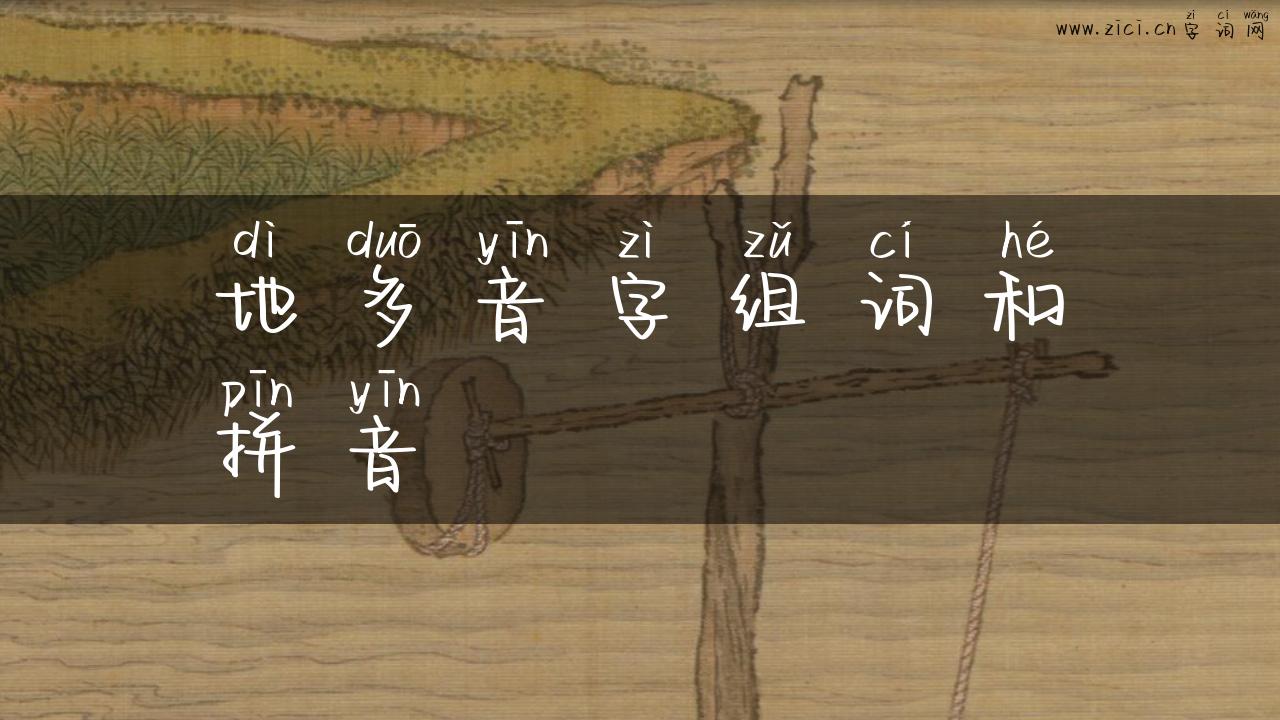 zì cí wǎng
www.zici.cn 字 词 网
dì duō yīn zì zǔ cí hé
地 多 音 字 组 词 和
pīn yīn
拼 音